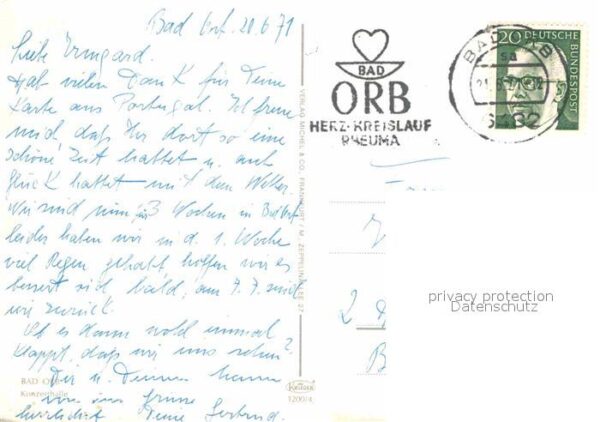 Bad Orb. 20.6.71
Liebe Irmgard.
Hab vielen Dank für Deine
Karte aus Portugal. Ich freue
mich, daß Ihr dort so eine
schöne Zeit hattet u. auch
Glück hattet mit dem Wetter.
Wir sind nun 3 Wochen in Bad Orb
leider haben wir in d. 1. Woche
viel Regen gehabt, hoffen wir es
bessert sich bald, am 7.7. sind
wir zurück.
Ob es dann wohl einmal
klappt, daß wir uns sehen?
Dir u. Deinem Mann
herzlichst Deine Gertrud
BAD ORB
Konzerthalle
VERLAG MICHEL & CO., FRANKFURT / M. ZEPPELINALLEE 27
Krüger
1200/4
BAD
ORB
HERZ-KREISLAUF
RHEUMA
BAD ORB
sa
6482
20 DEUTSCHE
BUNDESPOST
2
B
privacy protection
Datenschutz